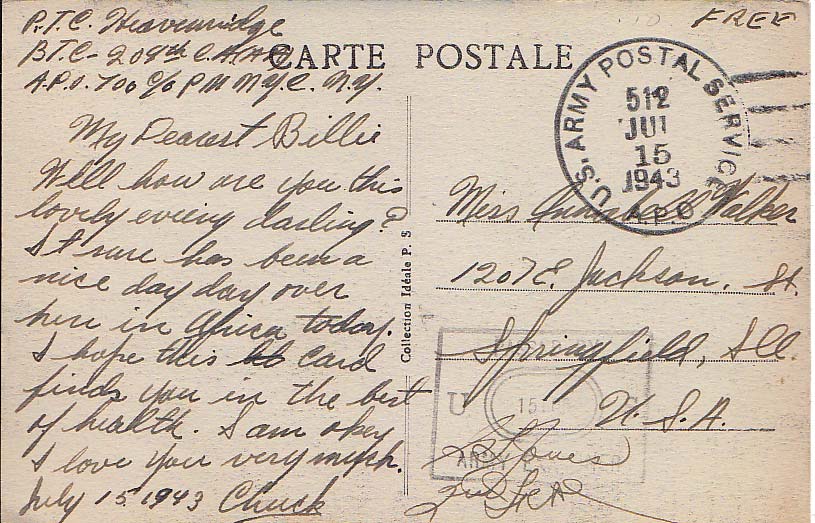 P.T.C. Heavenridge
BTC- 208th C.A.
A.P.O. 700 c/o P M N.Y.C. N.Y.
FREE
CARTE POSTALE
U.S. ARMY POSTAL SERVICE
A.P.O.
512
JUL
15
1943
My Dearest Billie
Well how are you this
lovely evening darling?
It sure has been a
nice day day over
here in Africa today.
I hope this card
finds you in the best
of health. I am okey
I love you very much.
July 15, 1943 Chuck
Collection Idéale P. S
Miss Walker
1207 E. Jackson. St.
Springfield, Ill.
U. S. A.
U
ARMY
Jones
2nd Lt